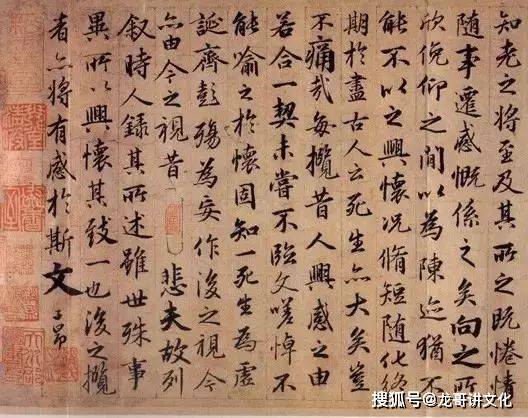 知老之將至及其所之既惓情
隨事遷感慨係之矣向之所
欣俛仰之間以為陳迹猶不
能不以之興懷况脩短隨化終
期於盡古人云死生亦大矣豈
不痛哉每攬昔人興感之由
若合一契未嘗不臨文嗟悼不
能喻之於懷固知一死生為虛
誕齊彭殤為妄作後之視今
亦由今之視昔 悲夫故列
叙時人錄其所述雖世殊事
異所以興懷其致一也後之攬
者亦將有感於斯文 子昂
搜狐号@龙哥讲文化